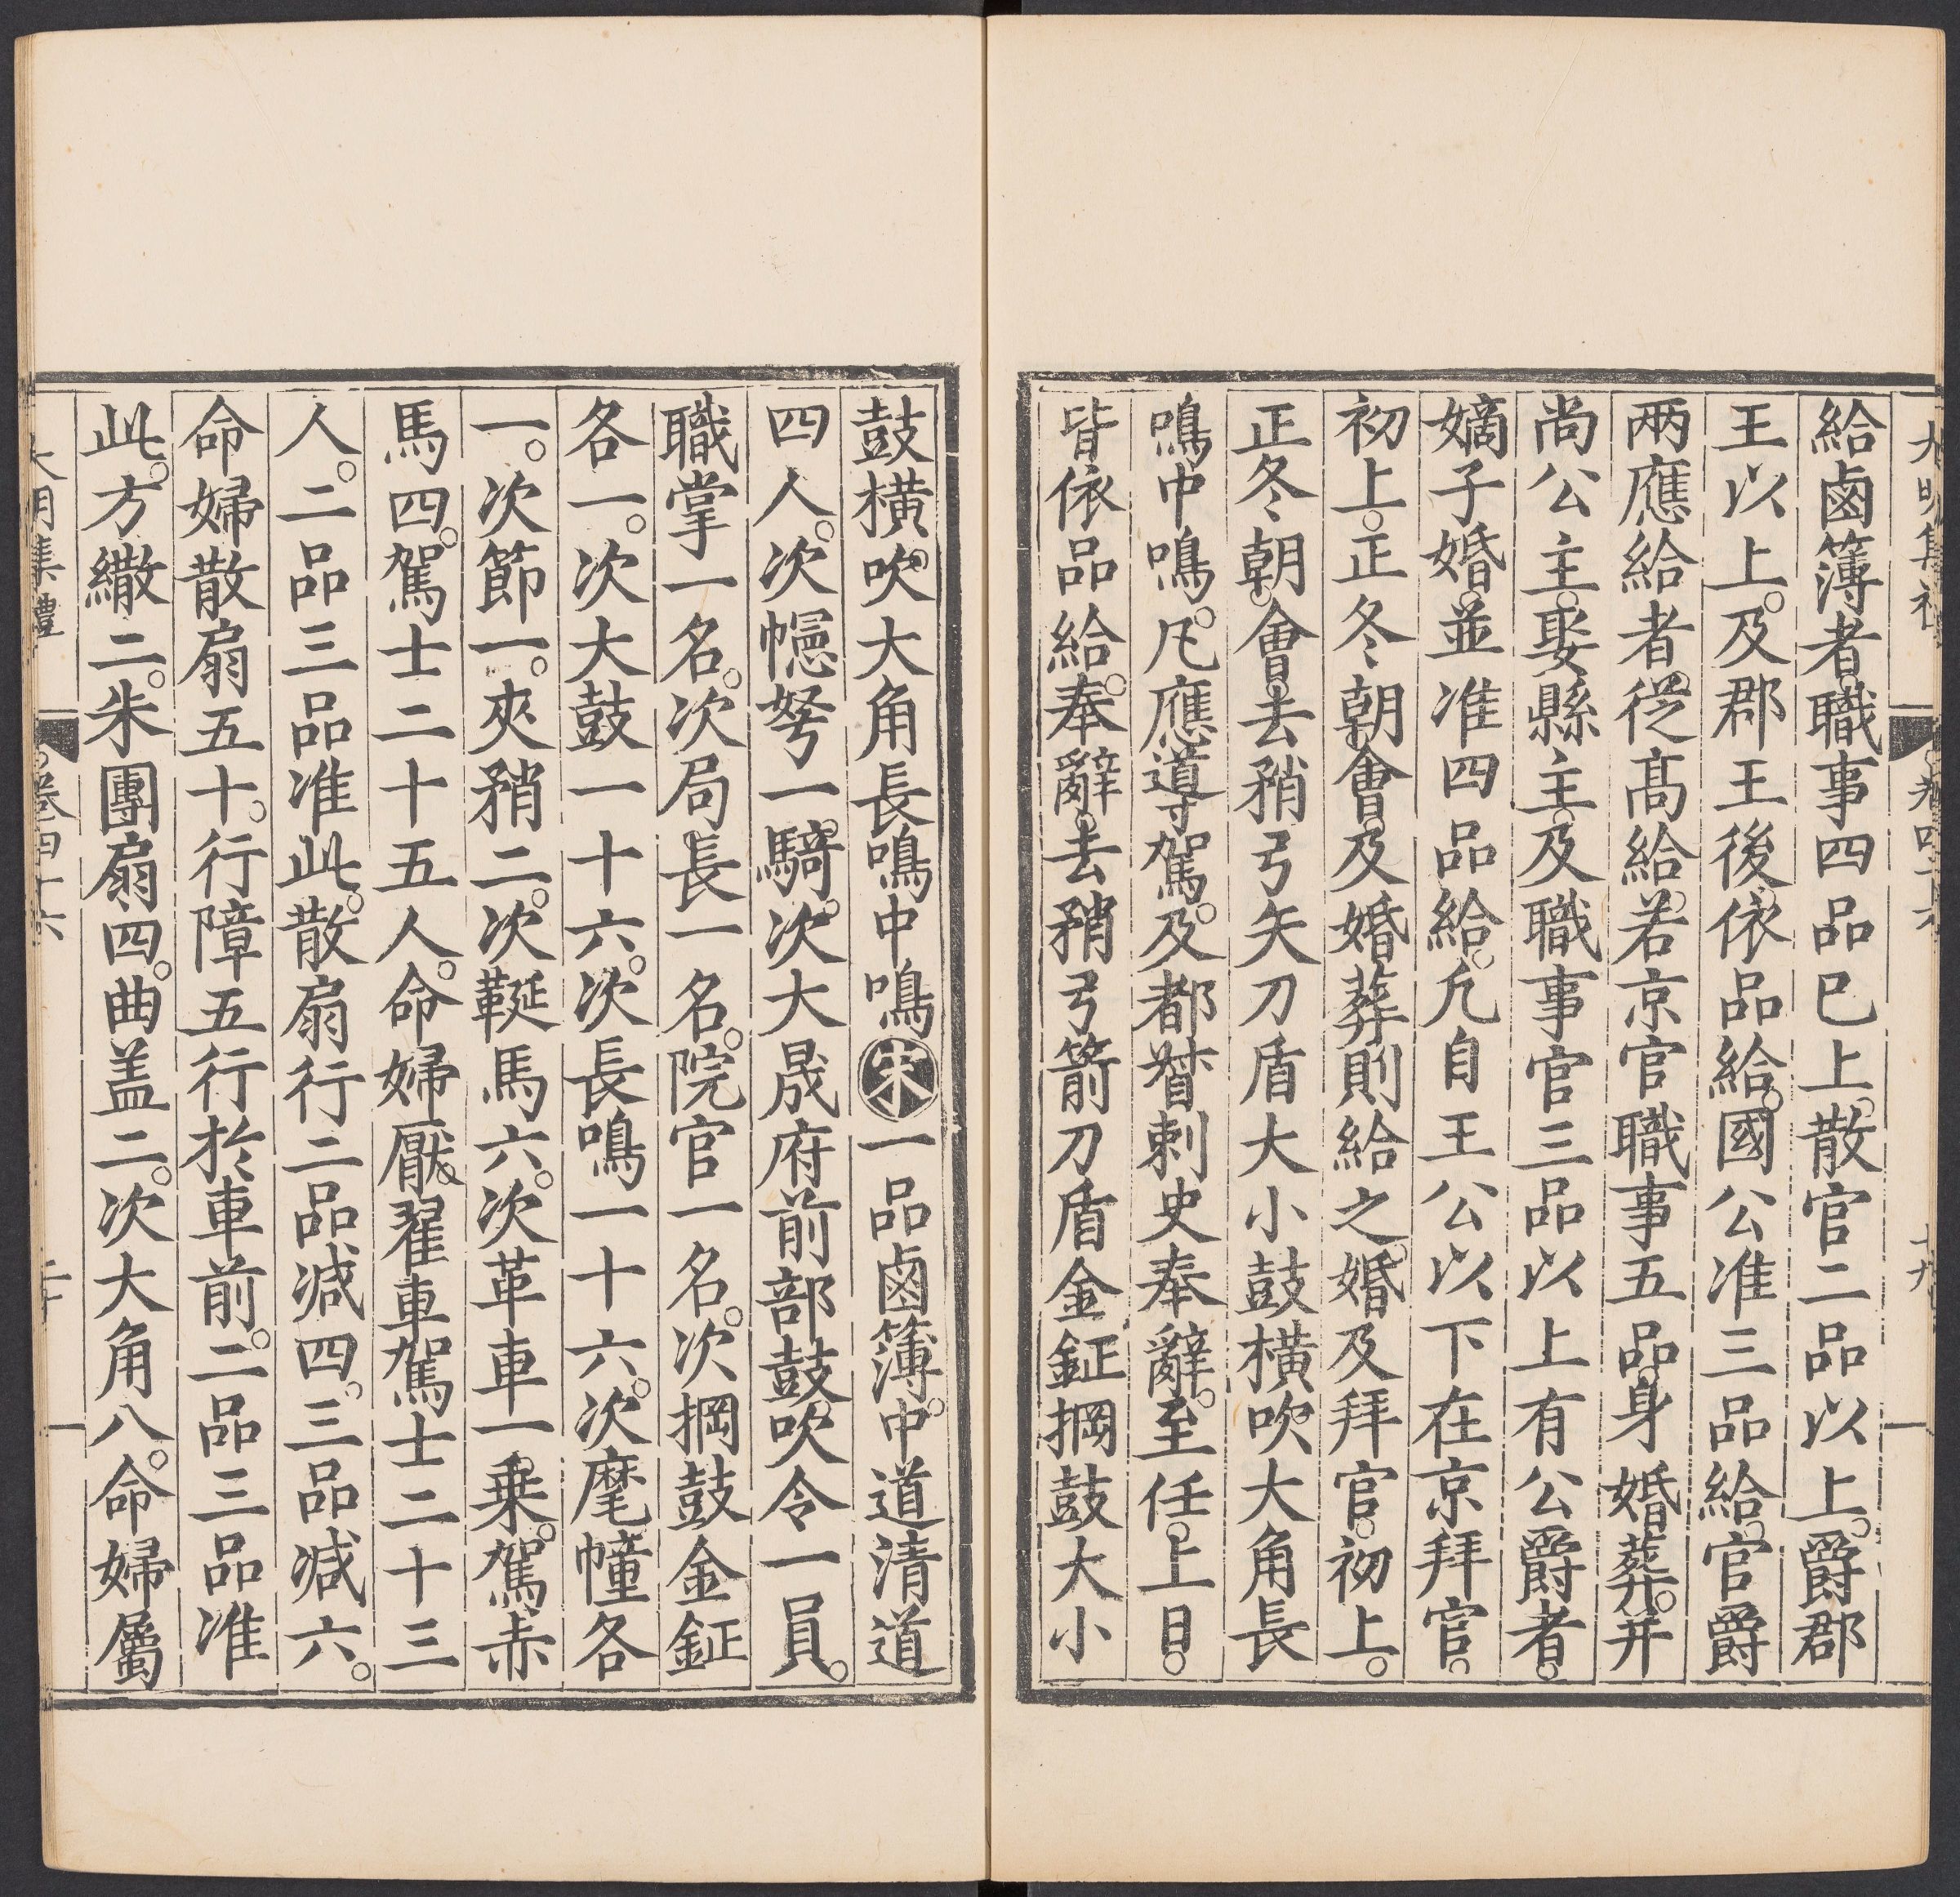 大明集禮 卷四十六 十九
給鹵簿者職事四品已上。散官二品以上。爵郡
王以上。及郡王後。依品給。國公准三品給。官爵
兩應給者。從髙給。若京官職事五品。身婚葬。并
尚公主。娶縣主。及職事官三品以上有公爵者。
嫡子婚。並准四品給。凢自王公以下在京拜官。
初上。正冬朝。會。及婚葬則給之。婚及拜官。初上。
正冬朝。會。去矟弓矢刀盾大小鼓橫吹大角長
鳴中鳴。凡應導駕。及都督刺史奉辭。至任。上日。
皆依品給。奉辭。去矟弓箭刀盾金鉦掆鼓大小
鼓橫吹。大角長鳴中鳴宋一品鹵簿。中道清道
四人。次幰弩一騎。次大晟府前部鼓。吹令一員。
職掌一名。次局長一名。院官一名。次掆鼓金鉦
各一。次大鼓一十六。次長鳴一十六。次麾幢各
一。次節一。夾矟二。次鞓馬六。次革車一乗。駕赤
馬四。駕士二十五人。命婦厭翟車駕士二十三
人。二品三品准此。散扇行二品减四。三品减六。
命婦散扇五十。行障五行於車前。二品三品准
此。方繖二。朱團扇四。曲盖二。次大角八。命婦屬
大明集禮 卷四十六 二十